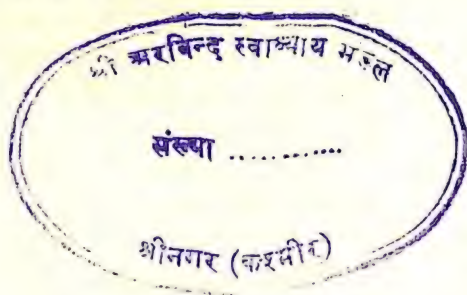 श्री अरविन्द स्वाध्याय मण्डल
संख्या ............
श्रीनगर (कश्मीर)